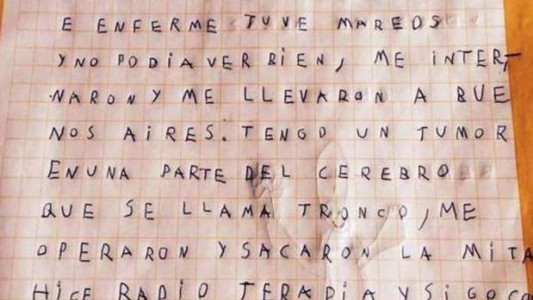 E ENFERME TUVE MAREOS
Y NO PODIA VER BIEN, ME INTER-
NARON Y ME LLEVARON A BUE
NOS AIRES. TENGO UN TUMOR
EN UNA PARTE DEL CEREBRO
QUE SE LLAMA TRONCO, ME
OPERARON Y SACARON LA MITA
HICE RADIO TERAPIA Y SIGO CO